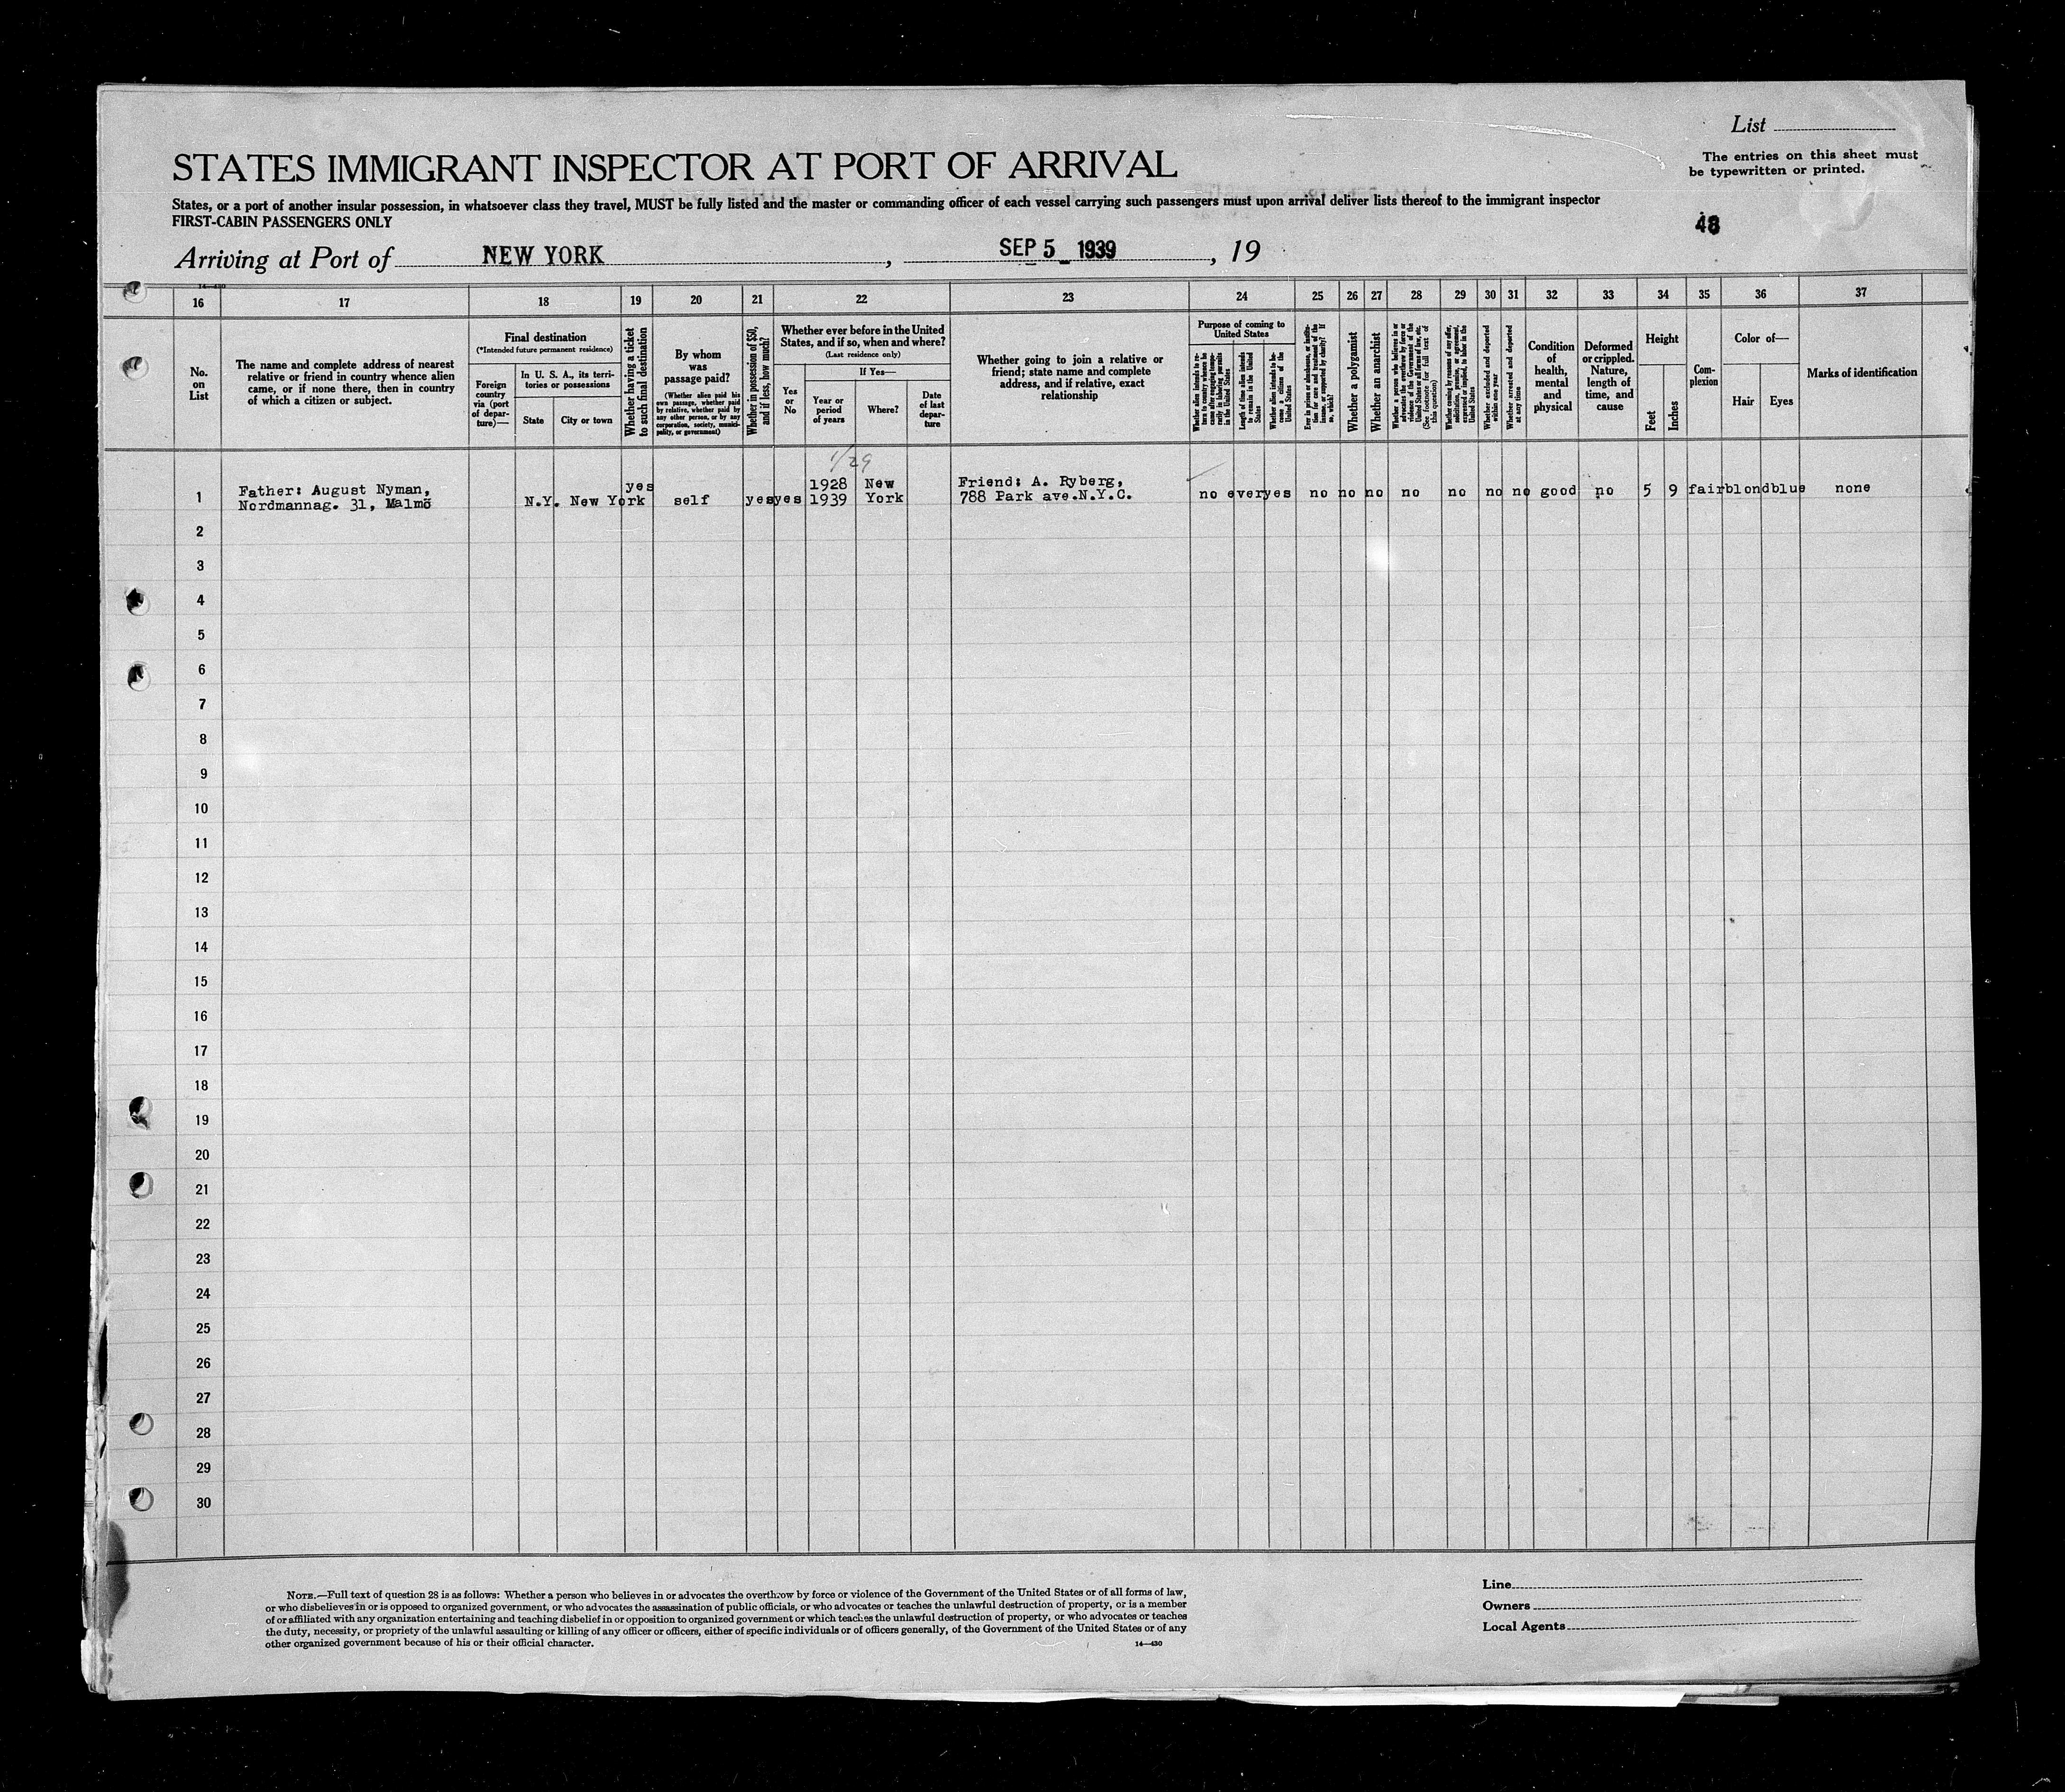 List
STATES IMMIGRANT INSPECTOR AT PORT OF ARRIVAL
The entries on this sheet must
be typewritten or printed.
States, or a port of another insular possession, in whatsoever class they travel, MUST be fully listed and the master or commanding officer of each vessel carrying such passengers must upon arrival deliver lists thereof to the immigrant inspector
FIRST-CABIN PASSENGERS ONLY
48
Arriving at Port of NEW YORK, SEP 5 1939, 19
14—430
16 17 18 19 20 21 22 23 24 25 26 27 28 29 30 31 32 33 34 35 36 37
No.
on
List
The name and complete address of nearest
relative or friend in country whence alien
came, or if none there, then in country
of which a citizen or subject.
Final destination
(*Intended future permanent residence)
Foreign
country
via (port
of depar-
ture)—
In U. S. A., its terri-
tories or possessions
State
City or town
Whether having a ticket
to such final destination
By whom
was
passage paid?
(Whether alien paid his
own passage, whether paid
by relative, whether paid by
any other person, or by any
corporation, society, munici-
pality, or government)
Whether in possession of $50,
and if less, how much?
Whether ever before in the United
States, and if so, when and where?
(Last residence only)
Yes
or
No
If Yes—
Year or
period
of years
Where?
Date
of last
depar-
ture
Whether going to join a relative or
friend; state name and complete
address, and if relative, exact
relationship
Purpose of coming to
United States
Whether alien intends to re-
turn to country whence he
came after engaging tempo-
rarily in laboring pursuits
in the United States
Length of time alien intends
to remain in the United
States
Whether alien intends to be-
come a citizen of the
United States
Ever in prison or almshouse, or institu-
tion for care and treatment of the
insane, or supported by charity? If
so, which?
Whether a polygamist
Whether an anarchist
Whether a person who believes in or
advocates the overthrow by force or
violence of the Government of the
United States or all forms of law, etc.
(See footnote for full text of
this question)
Whether coming by reasons of any offer,
solicitation, promise, or agreement,
expressed or implied, to labor in the
United States
Whether excluded and deported
within one year
Whether arrested and deported
at any time
Condition
of
health,
mental
and
physical
Deformed
or crippled.
Nature,
length of
time, and
cause
Height
Feet
Inches
Com-
plexion
Color of—
Hair
Eyes
Marks of identification
1/29
1 Father: August Nyman,
Nordmannag. 31, Malmö
N.Y. New York
yes
self
yes
yes
1928
1939
New
York
Friend: A. Ryberg,
788 Park ave.N.Y.C.
no ever yes no no no no no no no good no 5 9 fair blond blue none
2
3
4
5
6
7
8
9
10
11
12
13
14
15
16
17
18
19
20
21
22
23
24
25
26
27
28
29
30
NOTE.—Full text of question 28 is as follows: Whether a person who believes in or advocates the overthrow by force or violence of the Government of the United States or of all forms of law,
or who disbelieves in or is opposed to organized government, or who advocates the assassination of public officials, or who advocates or teaches the unlawful destruction of property, or is a member
of or affiliated with any organization entertaining and teaching disbelief in or opposition to organized government or which teaches the unlawful destruction of property, or who advocates or teaches
the duty, necessity, or propriety of the unlawful assaulting or killing of any officer or officers, either of specific individuals or of officers generally, of the Government of the United States or of any
other organized government because of his or their official character.
14—430
Line
Owners
Local Agents